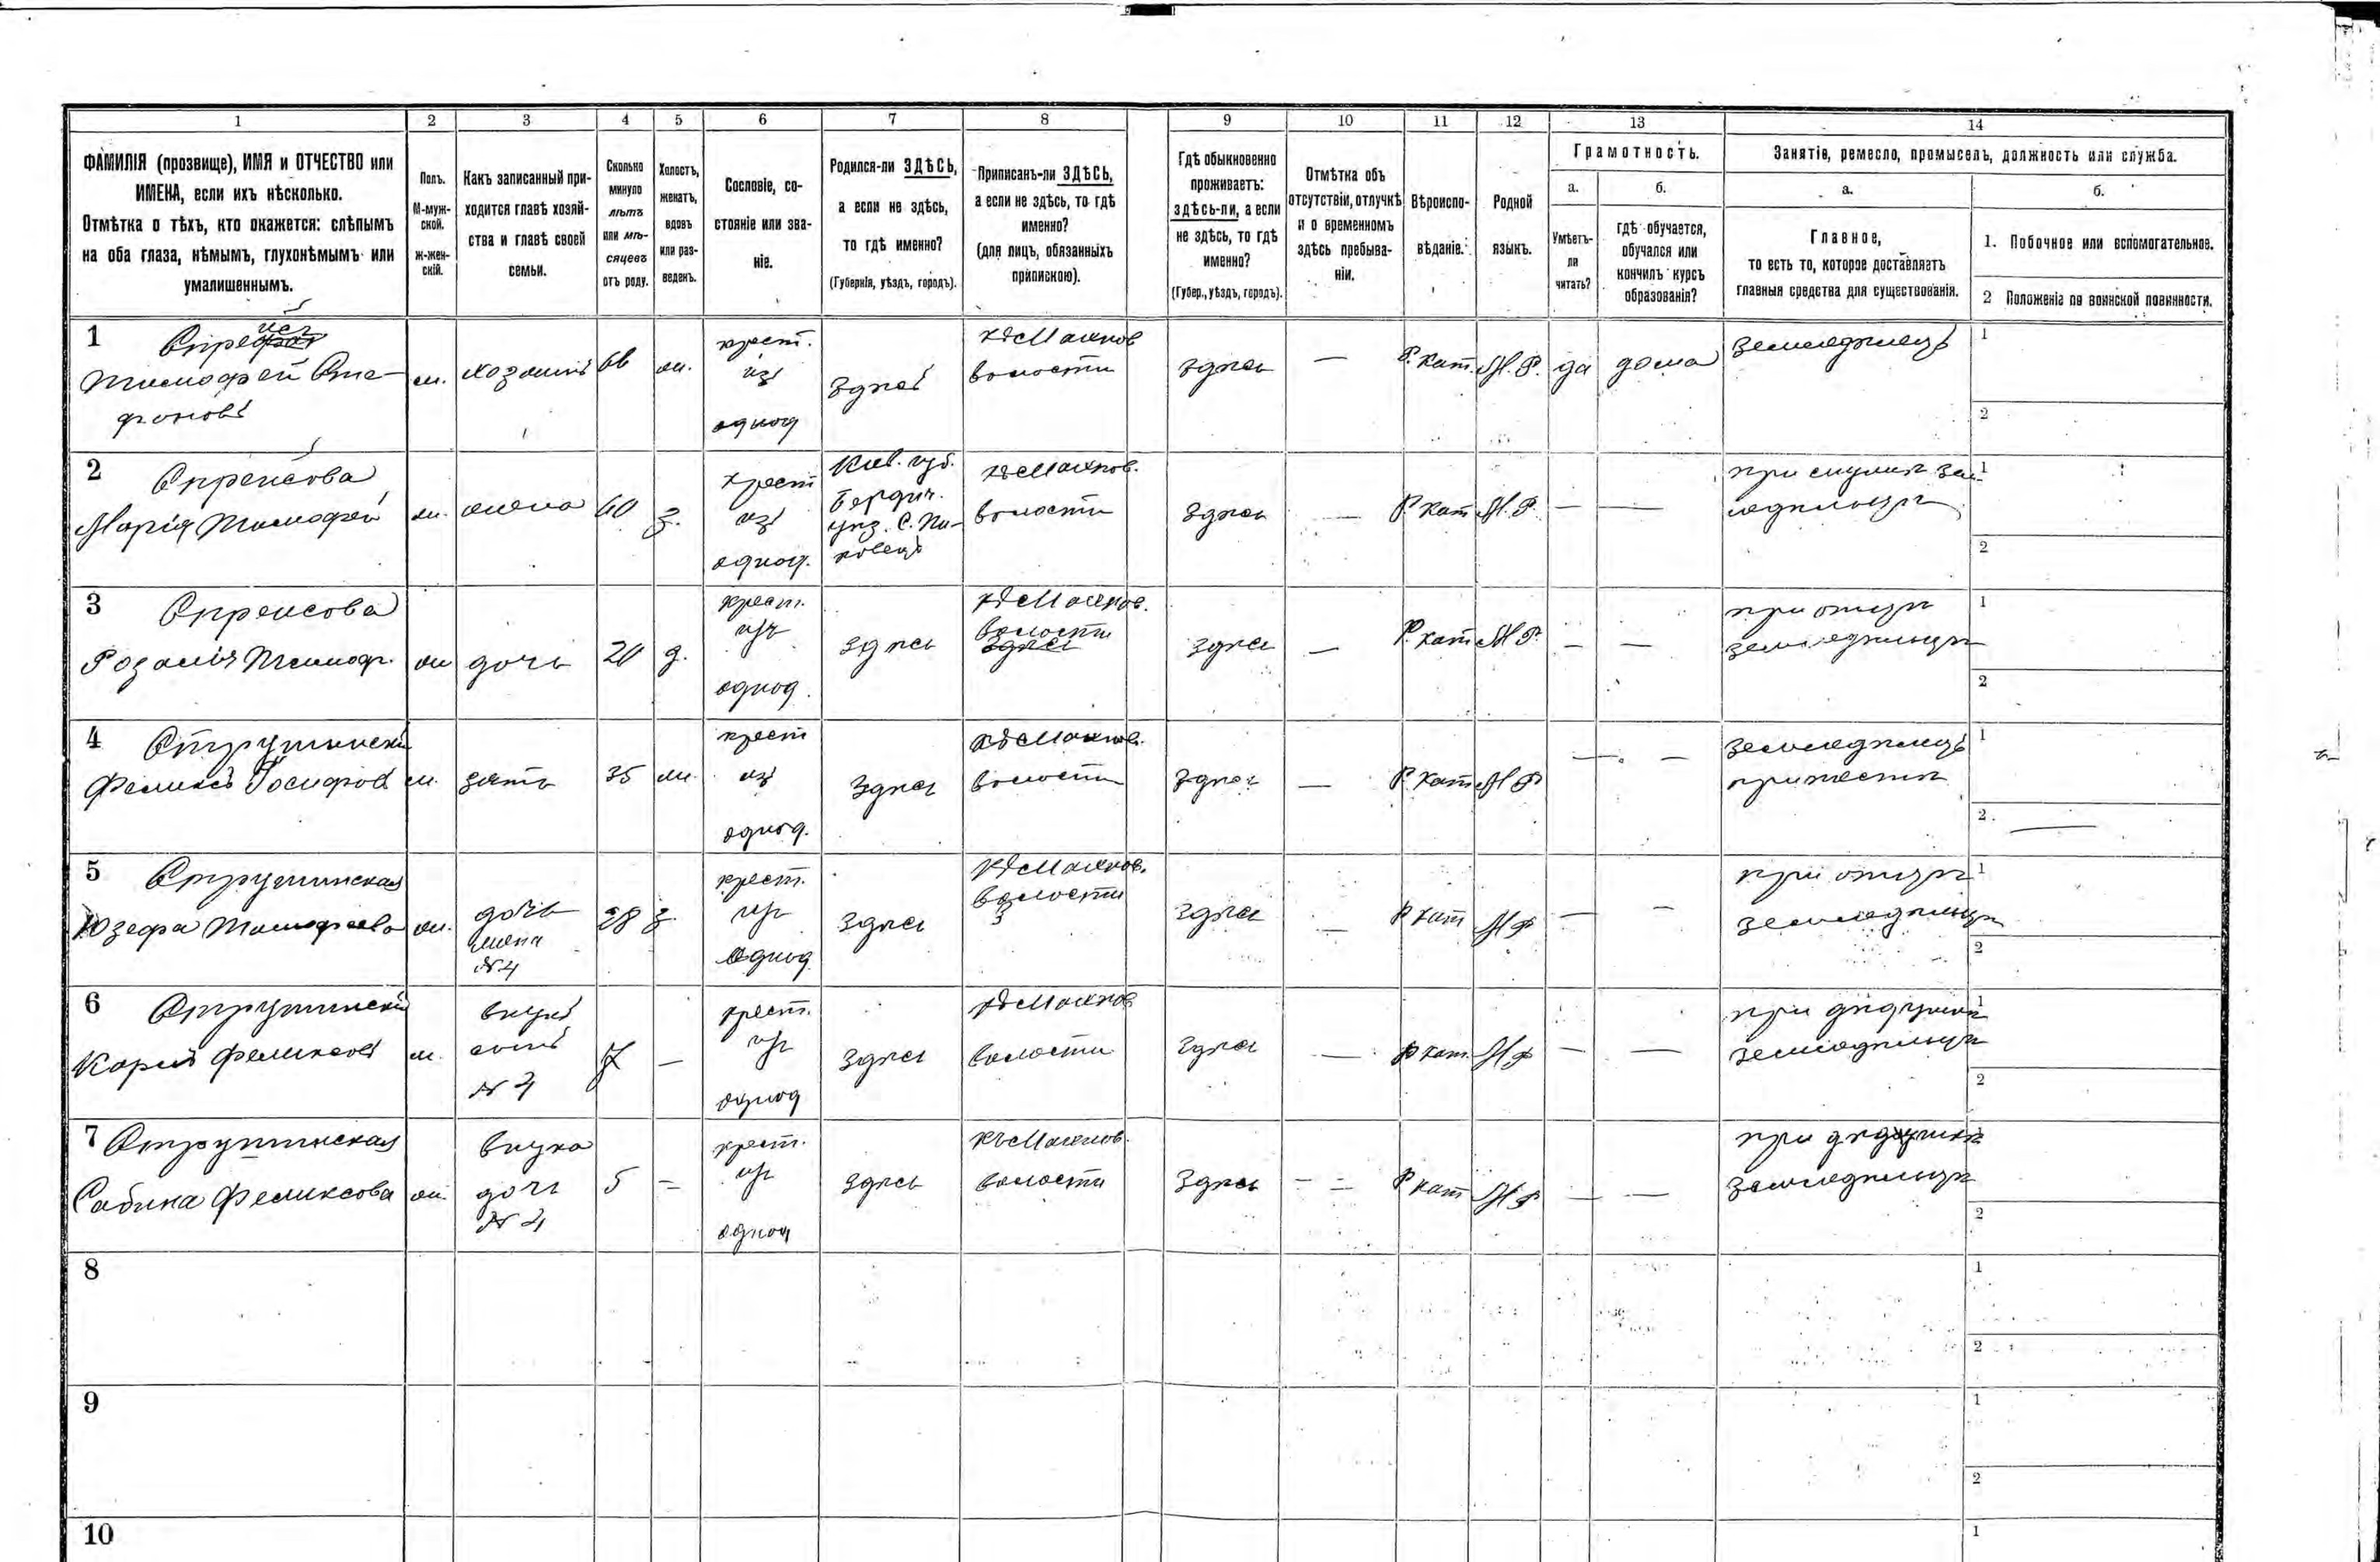 1
2
3
4
5
6
7
8
9
10
11
12
13
14
ФАМИЛІЯ (прозвище), ИМЯ и ОТЧЕСТВО или
ИМЕНА, если ихъ нѣсколько.
Отмѣтка о тѣхъ, кто окажется: слѣпымъ
на оба глаза, нѣмымъ, глухонѣмымъ или
умалишеннымъ.
Полъ.
М-муж-
ской.
Ж-жен-
скій.
Какъ записанный при-
ходится главѣ хозяй-
ства и главѣ своей
семьи.
Сколько
минуло
лѣтъ
или мѣ-
сяцевъ
отъ роду.
Холостъ,
женатъ,
вдовъ
или раз-
веденъ.
Сословіе, со-
стояніе или зва-
ніе.
Родился-ли ЗДѢСЬ,
а если не здѣсь,
то гдѣ именно?
(Губернія, уѣздъ, городъ).
Приписанъ-ли ЗДѢСЬ,
а если не здѣсь, то гдѣ
именно?
(для лицъ, обязанныхъ
припискою).
Гдѣ обыкновенно
проживаетъ:
здѣсь-ли, а если
не здѣсь, то гдѣ
именно?
(Губер., уѣздъ, городъ).
Отмѣтка объ
отсутствіи, отлучкѣ
и о временномъ
здѣсь пребыва-
ніи.
Вѣроиспо-
вѣданіе.
Родной
языкъ.
Грамотность.
а.
Умѣетъ-
ли
читать?
б.
гдѣ обучается,
обучался или
кончилъ курсъ
образованія?
Занятіе, ремесло, промыселъ, должность или служба.
а.
Главное,
то есть то, которое доставляетъ
главныя средства для существованія.
б.
1. Побочное или вспомогательное.
2 Положеніе по воинской повинности.
1
Тимофей Сте-
фановъ
м. хозяинъ 66 ж.
крест.
изъ
однод
здѣсь
волости
здѣсь — Р. кат. М. Р. да дома
земледѣлецъ
1
2
2
Марія Тимофей
ж. жена 60 з.
крест
изъ
однод.
Кіев. губ.
Бердич.
уѣз. С.
волости
здѣсь — Р. кат М. Р. — —
при
1
2
3
Розалія Тимоф.
ж дочь 20 д.
крест.
изъ
однод.
здѣсь
волости
здѣсь
здѣсь — Р. кат М Р. — —
при отцѣ
земледѣльцѣ
1
2
4 Струтински
Феликсъ Іосифов м. зять 35 ж.
крест
изъ
однод.
здѣсь
волости
здѣсь — Р. кат М Р — —
земледѣлецъ
при тестѣ
1
2
5 Струтинская
Юзефа Тимофеева ж.
дочь
жена
№ 4
28 з.
крест.
изъ
однод
здѣсь
волости
здѣсь — Р кат М Р — —
при отцѣ
земледѣльцѣ
1
2
6 Струтински
Феликсовъ м.
внукъ
сынъ
№ 4
7 —
крест.
изъ
однод
здѣсь
волости
здѣсь — Р кат. М Р — —
при дѣдушкѣ
земледѣльцѣ
1
2
7 Струтинская
Сабина Феликсова ж.
внука
дочь
№ 4
5 =
крест.
изъ
однод
здѣсь
волости
здѣсь — Р кат М Р — —
при дѣдушкѣ
земледѣльцѣ
1
2
8
1
2
9
1
2
10
1